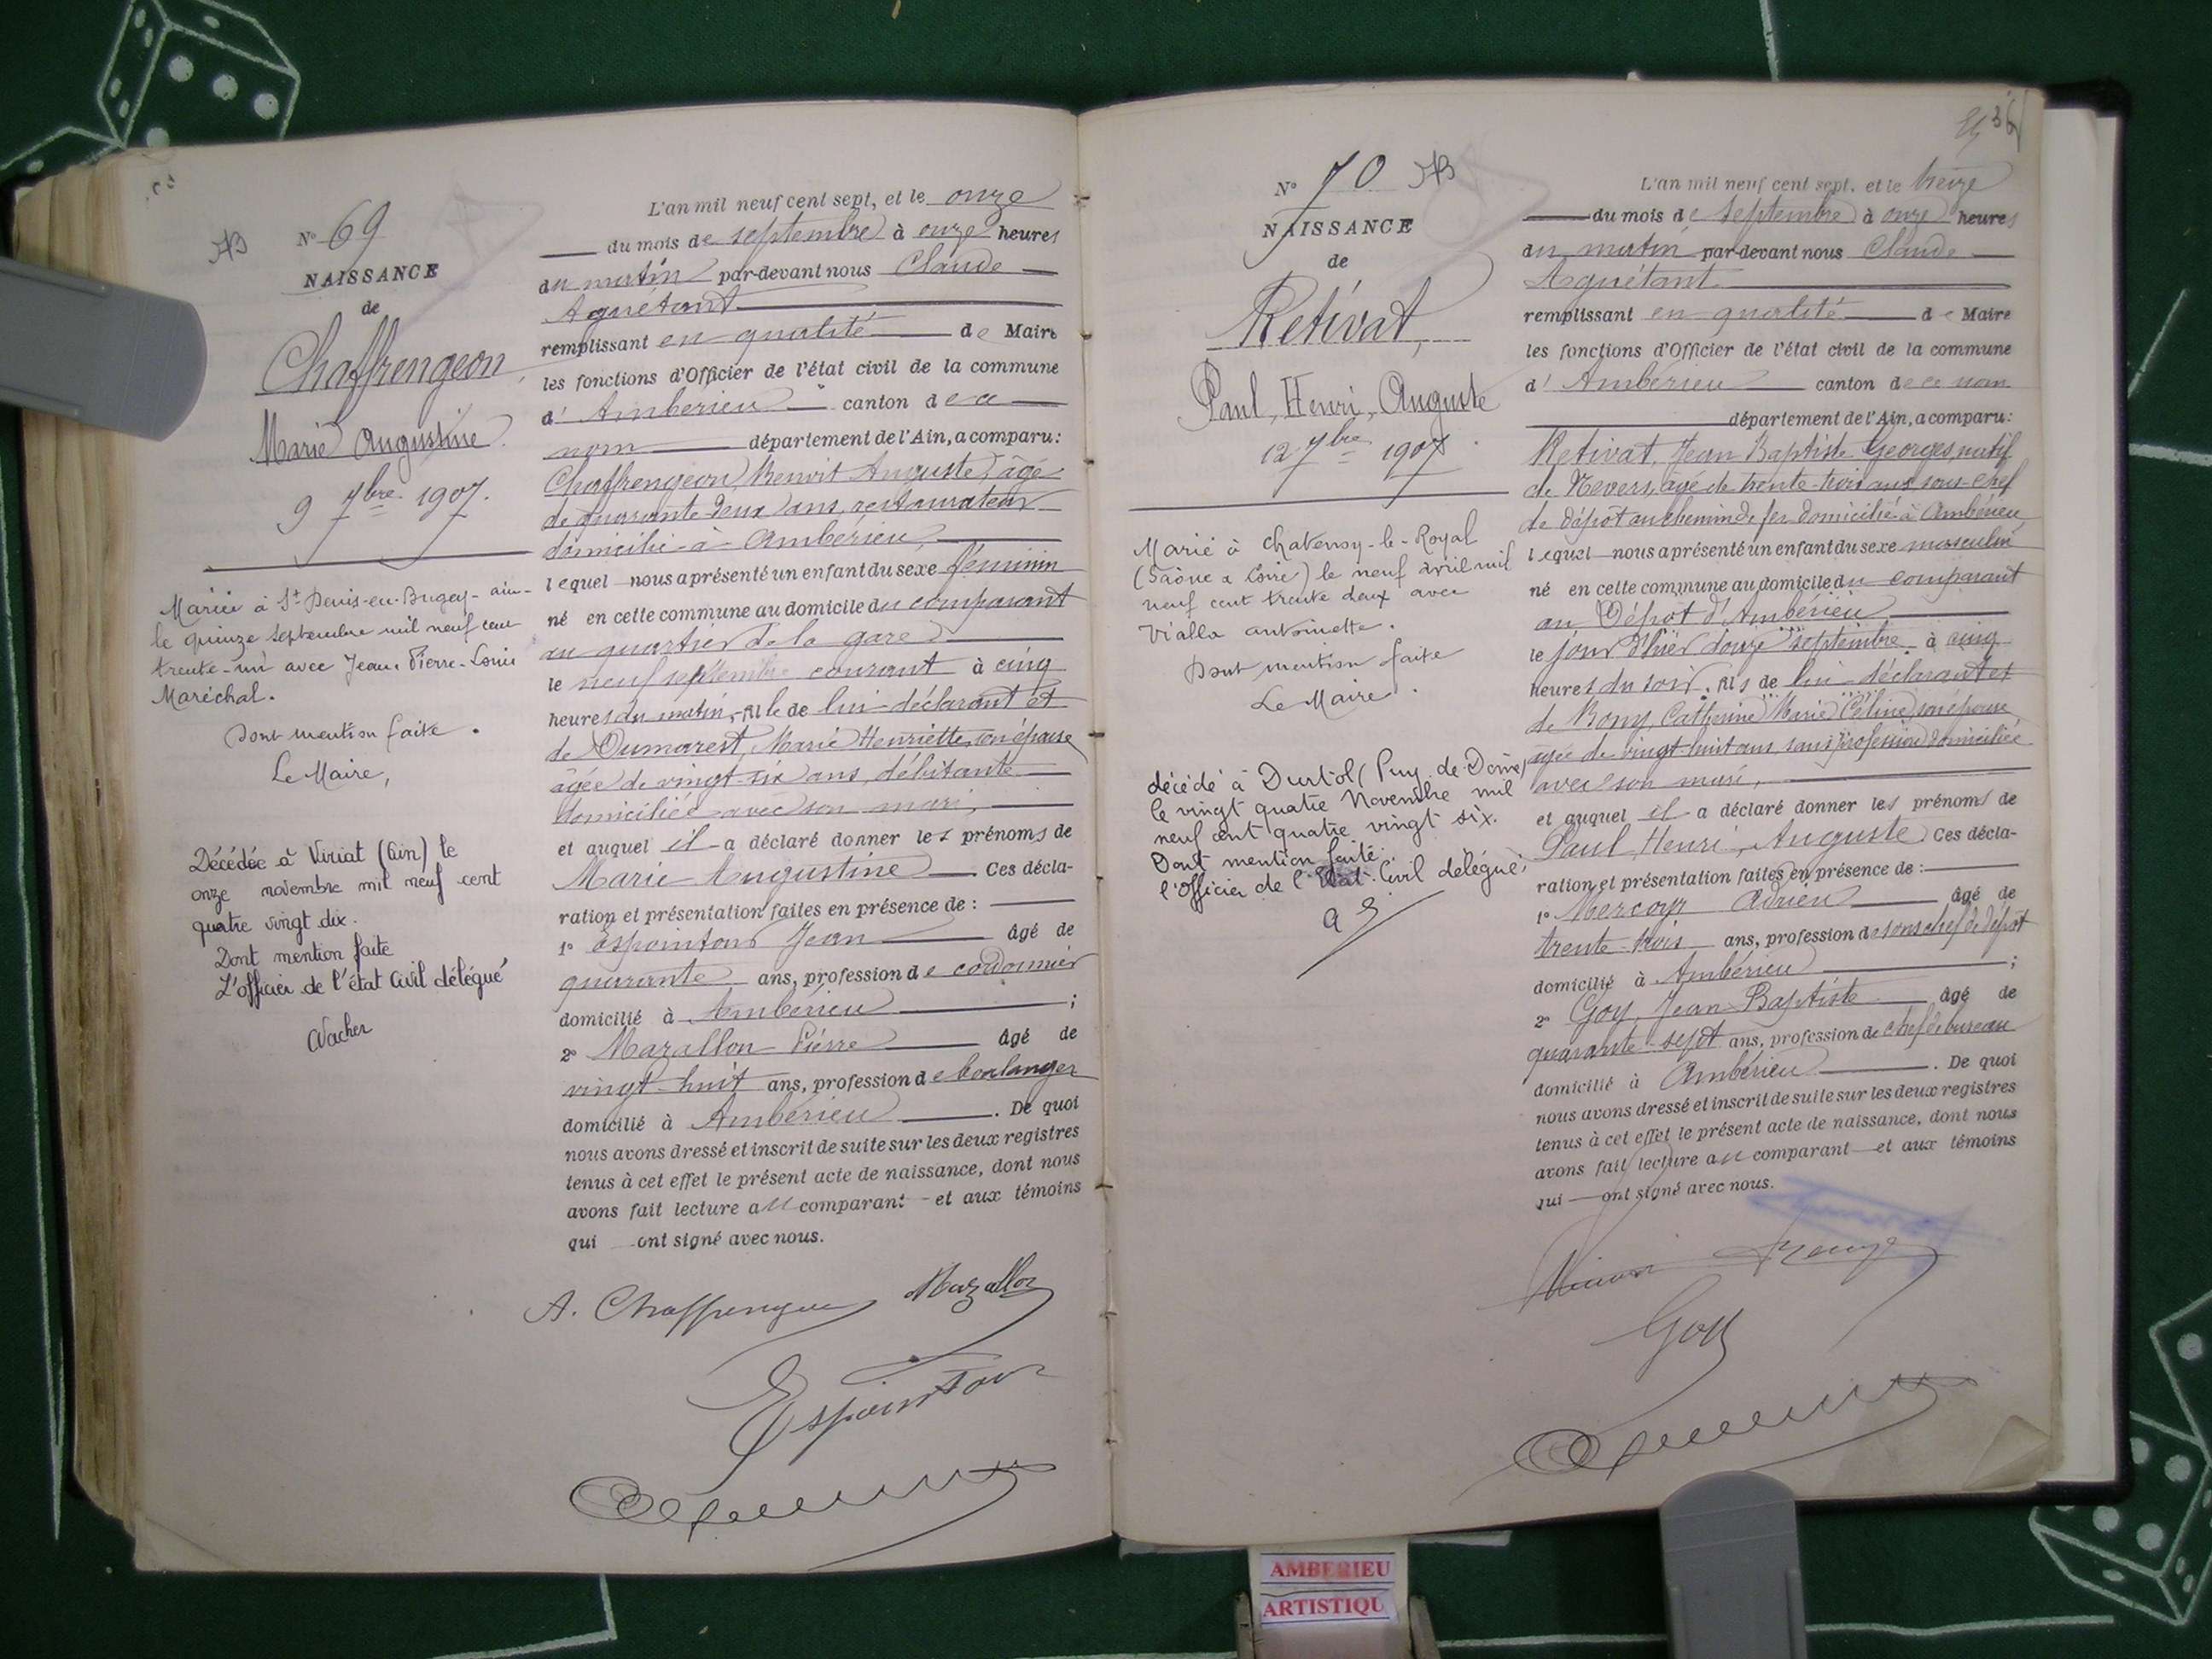 N° 69
NAISSANCE
de
Chaffrengeon
Marie Augustine
9 7bre 1907.
Mariée à St Denis-en-Bugey - ain -
le quinze septembre mil neuf cent
trente-un avec Jean Pierre-Louis
Maréchal.
Dont mention faite.
Le Maire,
Décédée à Viriat (Ain) le
onze novembre mil neuf cent
quatre vingt dix.
Dont mention faite
L'officier de l'état Civil délégué
Vacher
L'an mil neuf cent sept, et le onze
du mois de septembre à onze heures
du matin par-devant nous Claude
Aguétant
remplissant en qualité de Maire
les fonctions d'Officier de l'état civil de la commune
d' Ambérieu canton de ce
nom département de l'Ain, a comparu:
Chaffrengeon, Benoit Auguste, âgé
de quarante deux ans, restaurateur
domicilié à Ambérieu,
lequel nous a présenté un enfant du sexe féminin
né en cette commune au domicile du comparant
au quartier de la gare
le neuf septembre courant à cinq
heures du matin, fille de lui déclarant et
de Dumarest, Marie Henriette, son épouse
âgée de vingt-six ans, débitante
domiciliée avec son mari,
et auquel il a déclaré donner les prénoms de
Marie Augustine. Ces décla-
ration et présentation faites en présence de :
1° Espointour Jean âgé de
quarante ans, profession de cordonnier
domicilié à Ambérieu ;
2° Mazallon Pierre âgé de
vingt-huit ans, profession de boulanger
domicilié à Ambérieu. De quoi
nous avons dressé et inscrit de suite sur les deux registres
tenus à cet effet le présent acte de naissance, dont nous
avons fait lecture au comparant et aux témoins
qui ont signé avec nous.
A. Chaffrengeon Mazallon
Espointour
36
N° 70
NAISSANCE
de
Retivat,
Paul, Henri, Auguste
12 7bre 1907
Marié à Chatenoy-le-Royal
(Saône & Loire) le neuf avril mil
neuf cent trente deux avec
Vialla antoinette.
Dont mention faite
Le Maire.
décédé à Durtol (Puy de Dôme)
le vingt quatre Novembre mil
neuf cent quatre vingt six.
Dont mention faite.
l'Officier de l'Etat-Civil délégué,
L'an mil neuf cent sept, et le treize
du mois de septembre à onze heures
du matin par-devant nous Claude
Aguétant
remplissant en qualité de Maire
les fonctions d'Officier de l'état civil de la commune
d' Ambérieu canton de ce nom
département de l'Ain, a comparu:
Retivat, Jean Baptiste Georges, natif
de Nevers, âgé de trente-trois ans, sous-chef
de dépôt au chemin de fer domicilié à Ambérieu
lequel nous a présenté un enfant du sexe masculin
né en cette commune au domicile du comparant
au Dépôt d'Ambérieu
le jour d'hier douze septembre à cinq
heures du soir, fils de lui déclarant et
de Bony, Catherine Marie Céline, son épouse
âgée de vingt-huit ans sans profession domiciliée
avec son mari,
et auquel il a déclaré donner les prénoms de
Paul, Henri, Auguste. Ces décla-
ration et présentation faites en présence de :
1° Adrien âgé de
trente-trois ans, profession de sous chef de dépôt
domicilié à Ambérieu ;
2° Goy, Jean-Baptiste âgé de
quarante-sept ans, profession de chef de bureau
domicilié à Ambérieu. De quoi
nous avons dressé et inscrit de suite sur les deux registres
tenus à cet effet le présent acte de naissance, dont nous
avons fait lecture au comparant et aux témoins
qui ont signé avec nous.
Goy
AMBERIEU
ARTISTIQU